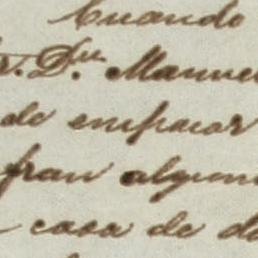 Cuando
r. Dn. Manue
de empacar
fran algun
casa de d